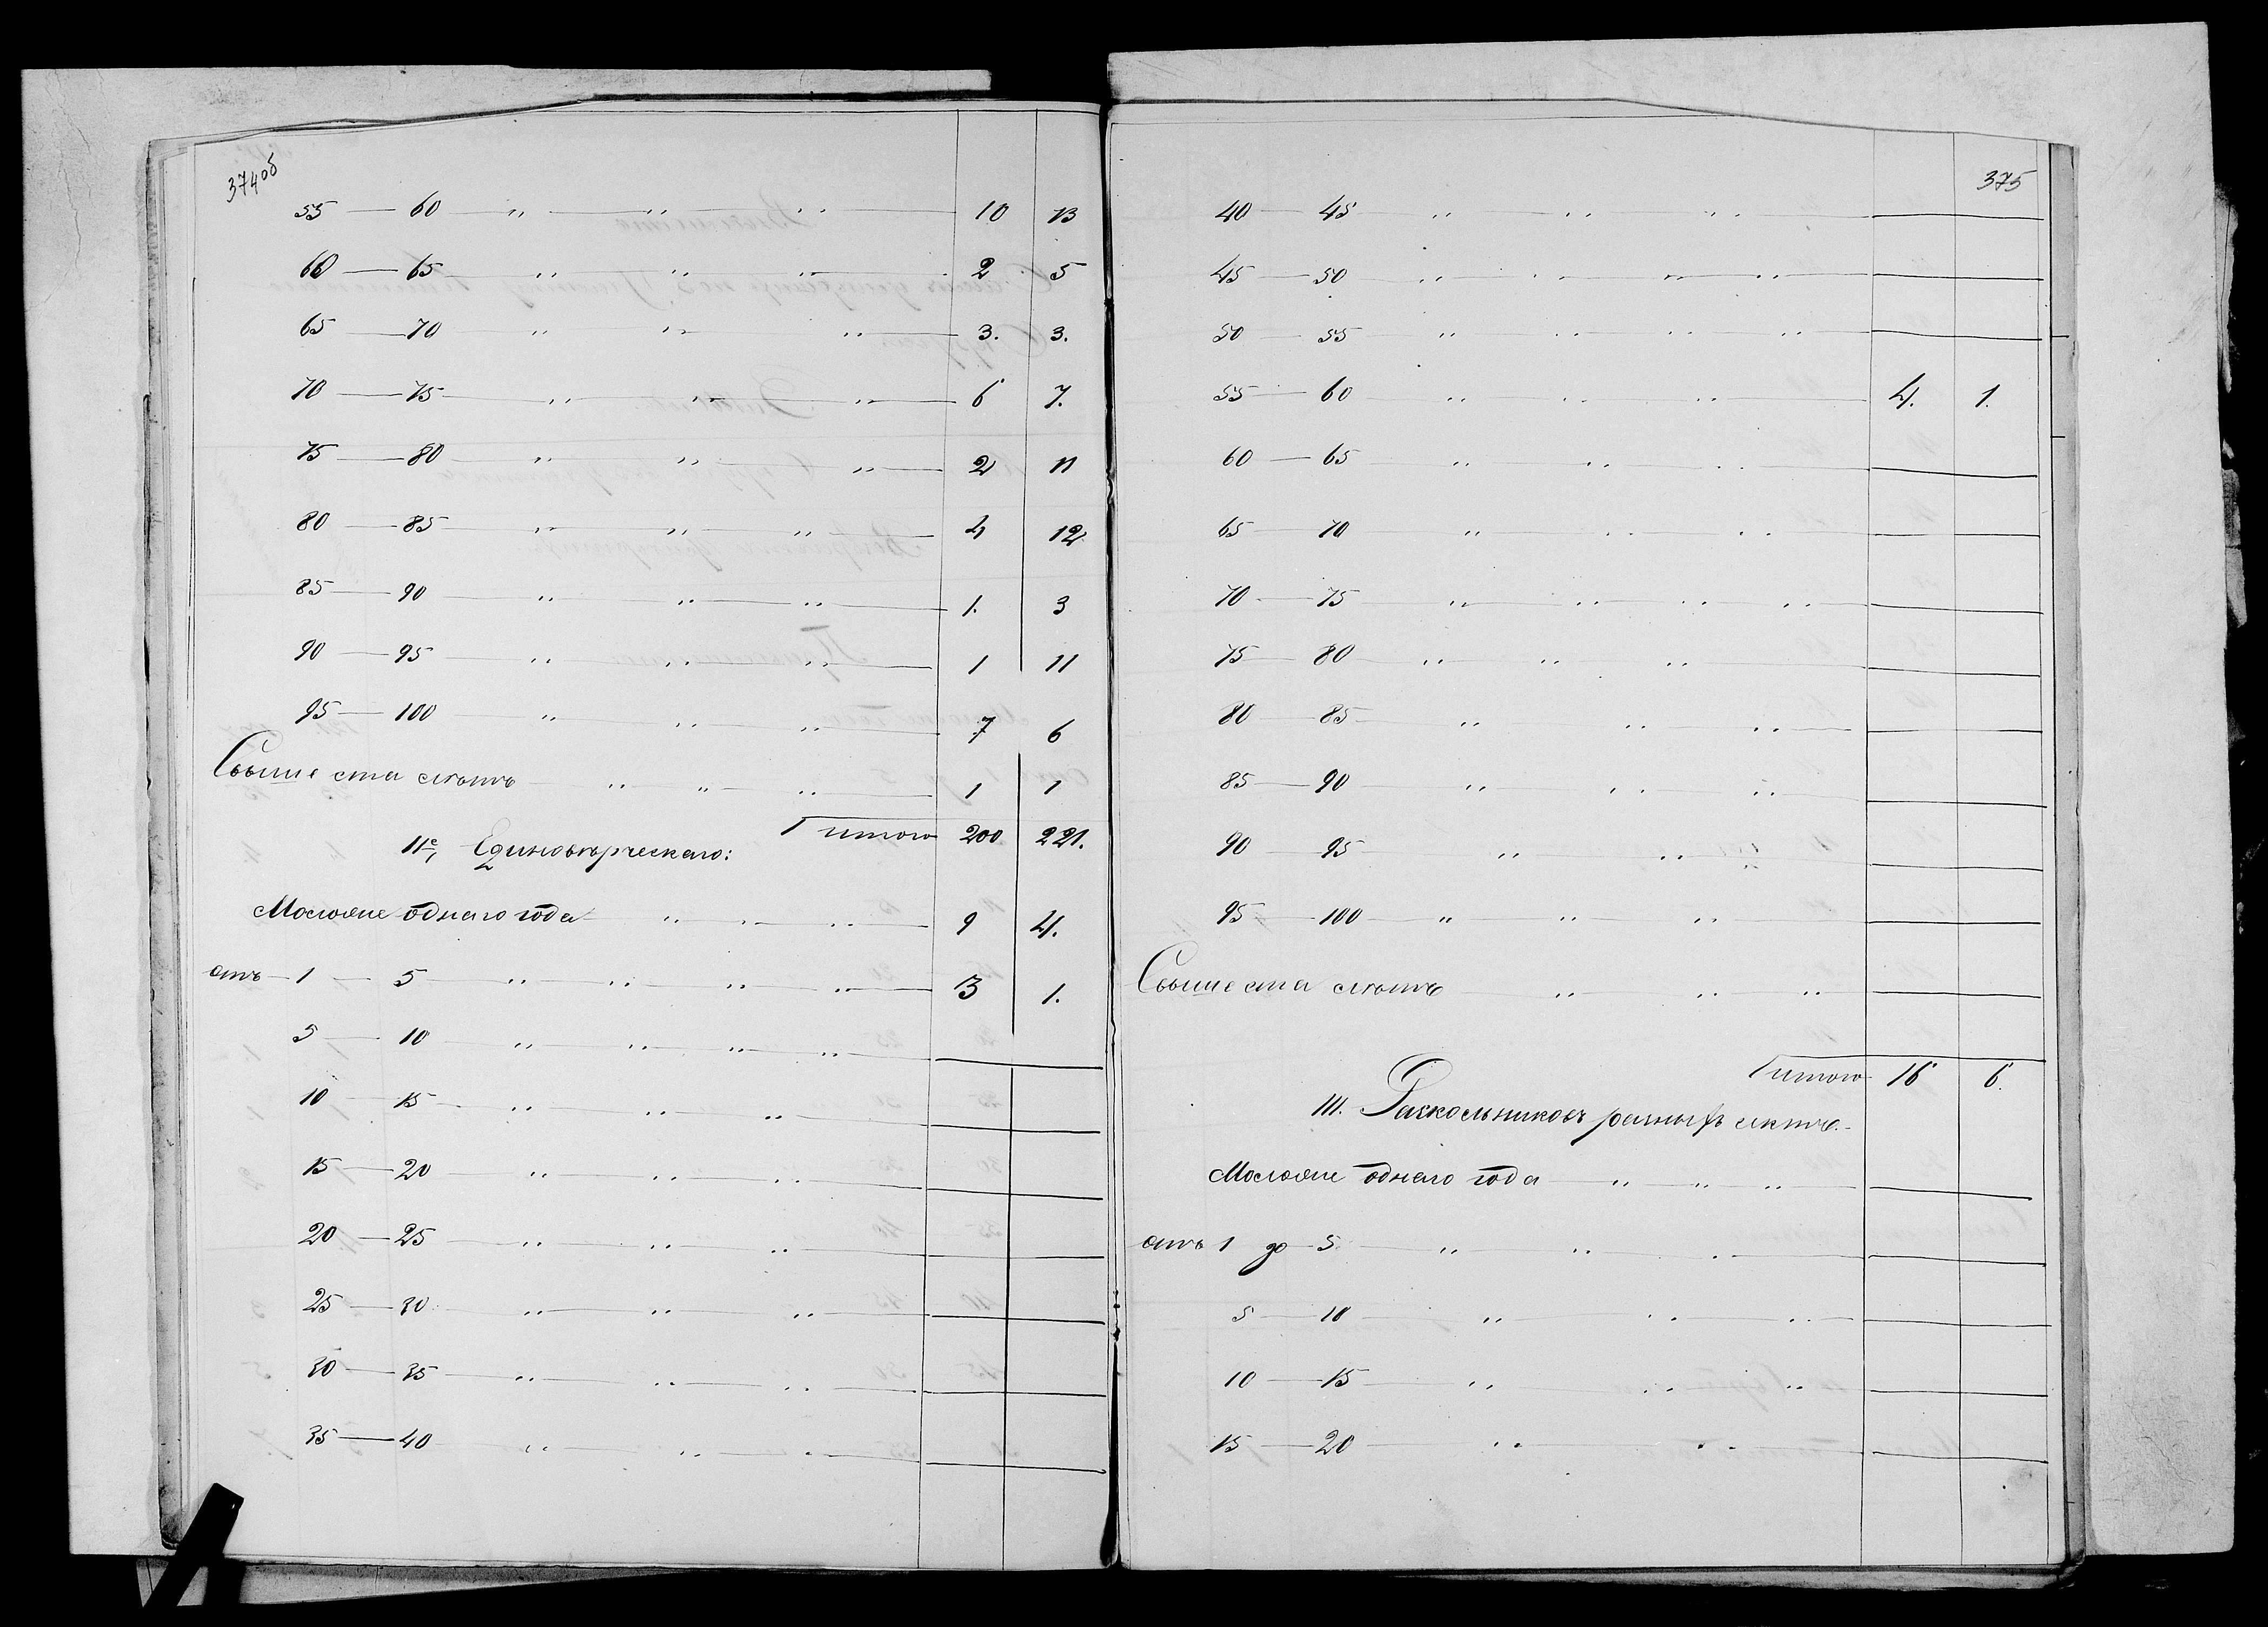 374об
55 — 60 — „ — „ — „ — 10 13
60 — 65 — „ — „ — „ — 2 5
65 — 70 — „ — „ — „ — 3. 3.
70 — 75 — „ — „ — „ — 6 7.
75 — 80 — „ — „ — „ — 2 11
80 — 85 — „ — „ — „ — 4 12
85 — 90 — „ — „ — „ — 1. 3
90 — 95 — „ — „ — „ — 1 11
95 — 100 — „ — „ — „ — 7 6
Свыше ста лѣтъ — „ — „ — „ — 1 1
итого 200 221.
II, Единовѣрческаго:
Моложе однаго года — „ — „ — „ — 9 4.
отъ — 1 — 5 — „ — „ — „ — „ — 3 1.
5 — 10 — „ — „ — „ — „ —
10 — 15 — „ — „ — „ —
15 — 20 — „ — „ — „ —
20 — 25 — „ — „ — „ —
25 — 30 — „ — „ — „ —
30 — 35 — „ — „ — „ —
35 — 40 — „ — „ — „ —
375
40 — 45 — „ — „ — „ —
45 — 50 — „ — „ — „ — „ —
50 — 55 — „ — „ — „ — „ —
55 — 60 — „ — „ — „ — 4. 1.
60 — 65 — „ — „ — „ —
65 — 70 — „ — „ — „ —
70 — 75 — „ — „ — „ — „ —
75 — 80 — „ — „ — „ —
80 — 85 — „ — „ — „ —
85 — 90 — „ — „ — „ —
90 — 95 — „ — „ —
95 — 100 — „ — „ — „ —
Свыше ста лѣтъ — „ — „ — „ —
итого 16 6.
III. Раскольниковъ разныхъ сектъ.
Моложе однаго года — „ — „ — „ —
отъ 1 до 5 — „ — „ — „ —
5 — 10 — „ — „ — „ —
10 — 15 — „ — „ — „ —
15 — 20 — „ — „ —